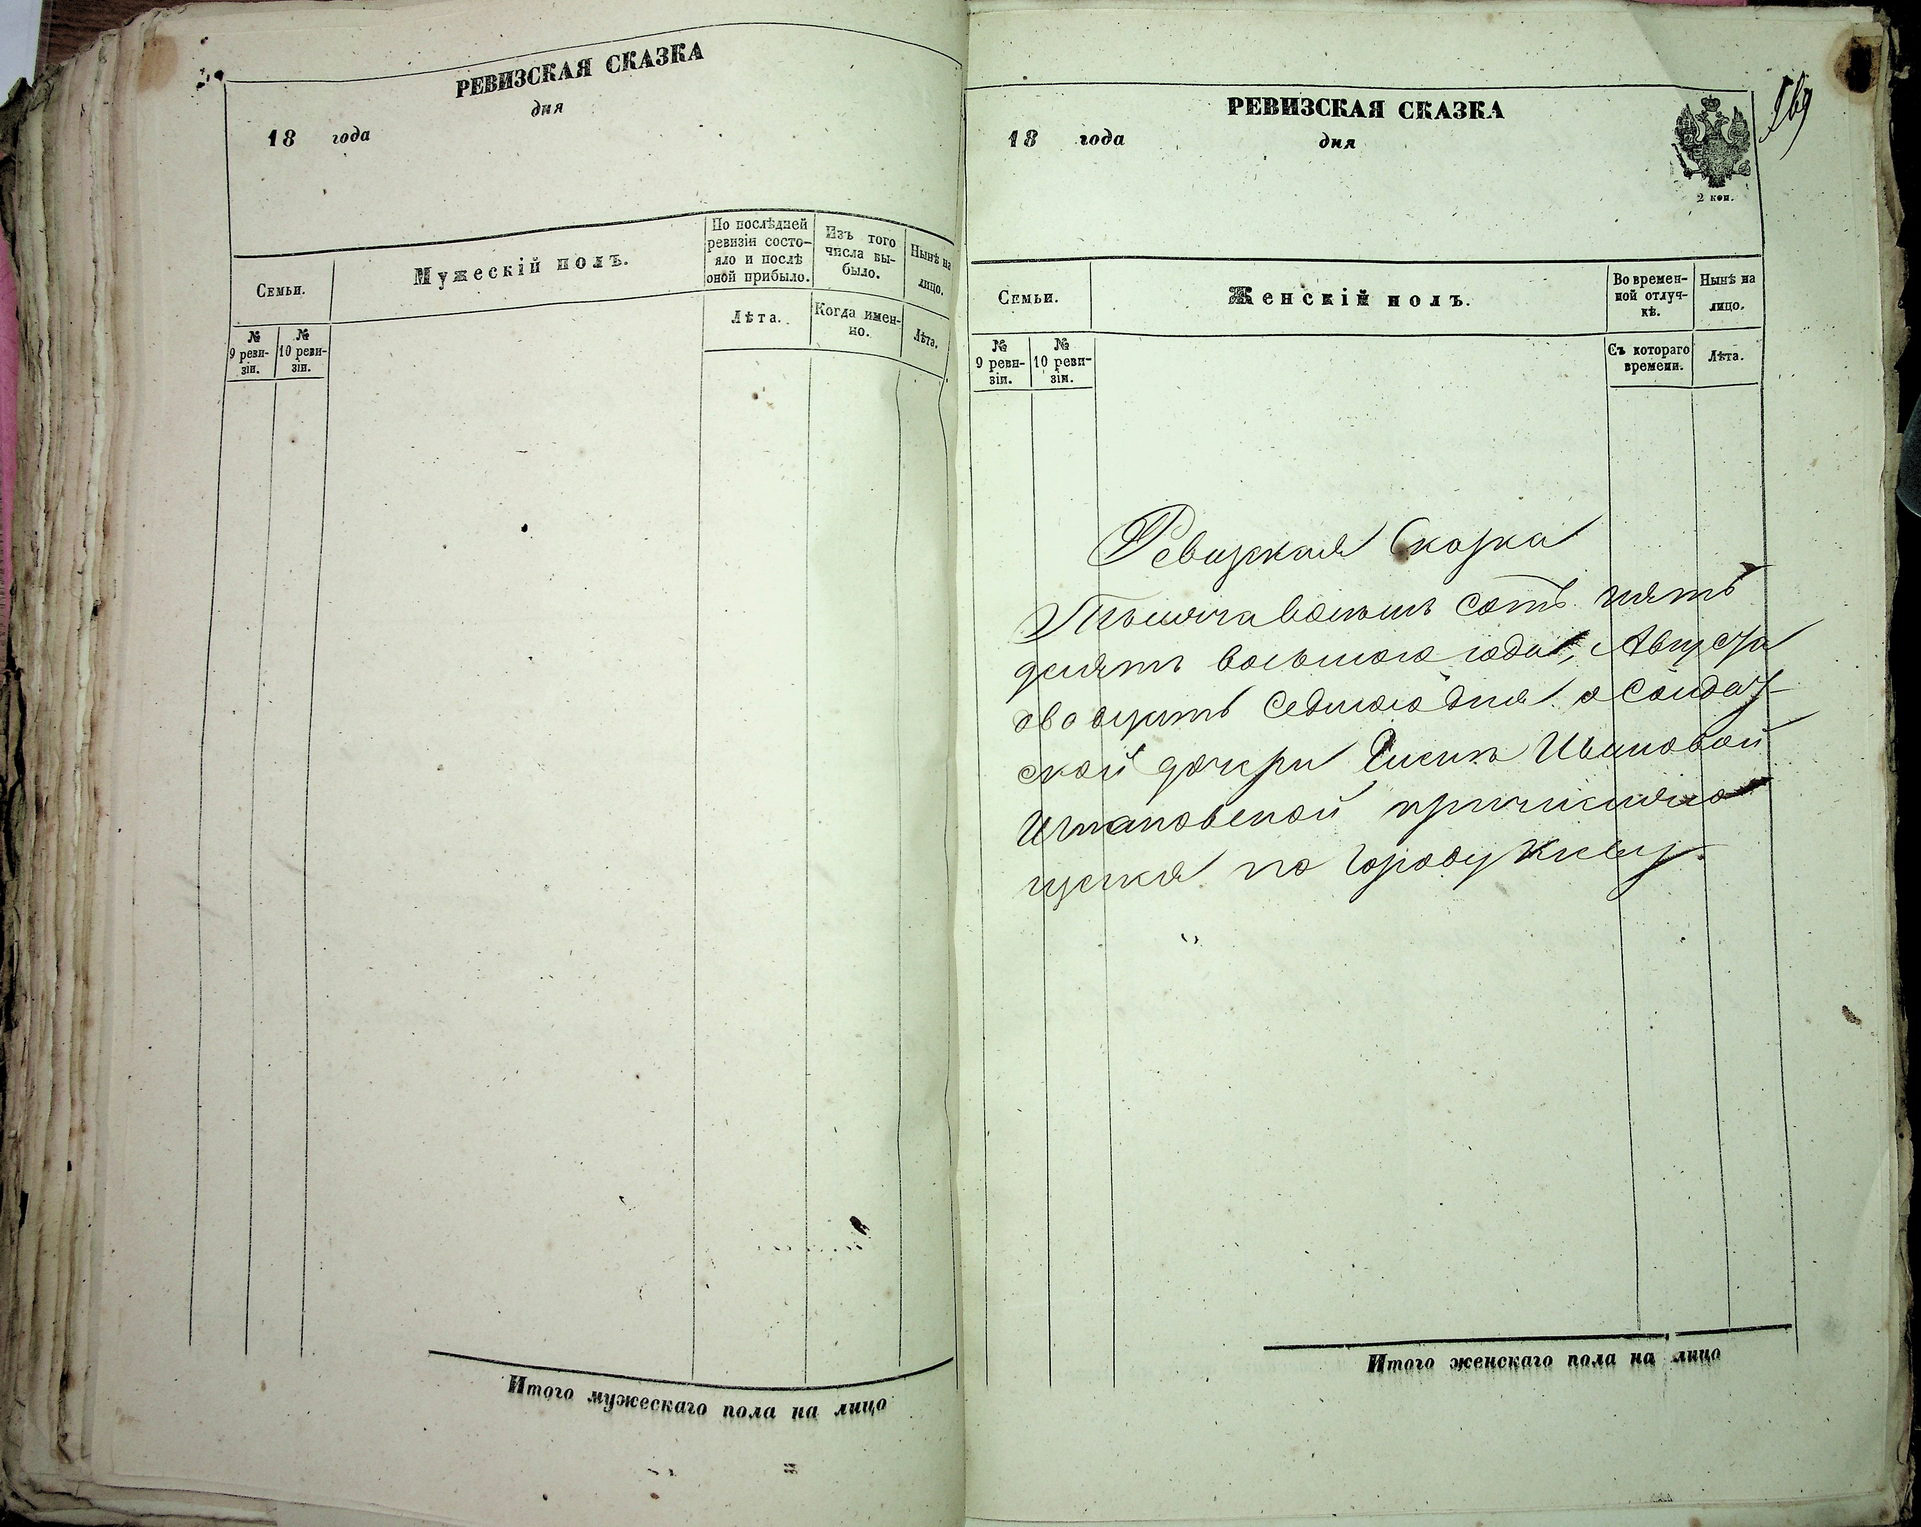 РЕВИЗСКАЯ СКАЗКА
18 года дня
Семьи.
Мужескій полъ.
По послѣдней ревизіи состояло и послѣ оной прибыло.
Изъ того числа выбыло.
Нынѣ на лицо.
№ 9 ревизіи.
№ 10 ревизіи.
Лѣта.
Когда именно.
Лѣта.
Итого мужескаго пола на лицо
РЕВИЗСКАЯ СКАЗКА
18 года дня
2 коп.
569
Семьи.
Женскій полъ.
Во временной отлучкѣ.
Нынѣ на лицо.
№ 9 ревизіи.
№ 10 ревизіи.
Съ котораго времени.
Лѣта.
Ревизская Сказка
Тысяча восемь сотъ пять
десятъ восьмого года, Августа
двадцать седмого дня о солдат
ской дочери Ивановой
причисляю
щейся по городу Киеву.
Итого женскаго пола на лицо